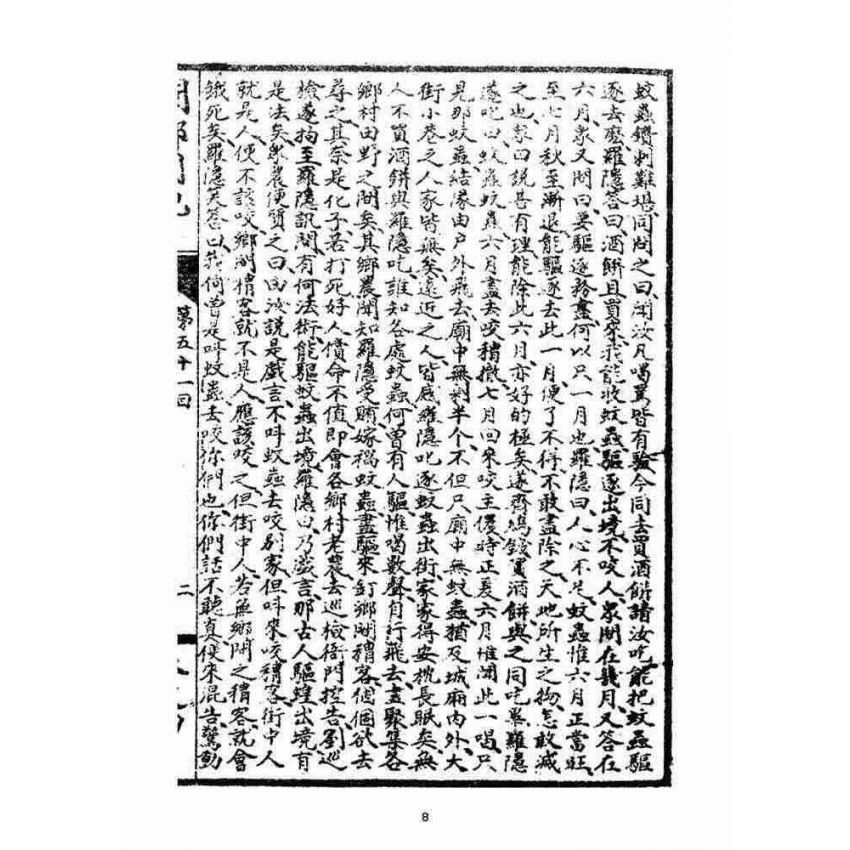 蚊蟲鑽刺難堪同問之曰聞汝凡喝罵皆有驗今同去買酒餅請汝吃能把蚊蟲驅
逐去麽羅隱答曰酒餅且買來我能收蚊蟲驅逐出境不咬人衆問在幾月又答在
六月衆又問曰要驅逐務盡何以只一月也羅隱曰人心不足蚊蟲惟六月正當旺
至七月秋至漸退能驅逐去此一月便了不得不敢盡除之天地所生之物怎敢滅
之也衆曰說甚有理能除此六月亦好的極矣遂齊鳩錢買酒餅與之同吃畢羅隱
遂叱曰蚊蟲蚊蟲六月盡去咬稍撒七月回來咬主僾時正夏六月惟聞此一喝只
見那蚊蟲結隊由戶外飛去廟中無剩半个不但只廟中無蚊蟲猶及城廂內外大
街小巷之人家皆無矣遠近之人皆感羅隱叱逐蚊蟲出街家家得安枕長眠矣無
人不買酒餅與羅隱吃誰知各處蚊蟲何曾有人驅惟喝數聲自行飛去盡聚集各
鄉村田野之間矣其鄉農聞知羅隱受賄嫁禍蚊蟲盡驅來釘鄉間稍客個個欲去
尋之其奈是化子若打死好人償命不值即會各鄉村老農去巡檢衙門控告劉巡
檢遂拘至羅隱訊問有何法術能驅蚊蟲出境羅隱曰乃戲言那古人驅蝗出境有
是法矣衆農便質之曰汝說是戲言不叫蚊蟲去咬別家但叫來咬稍客街中人
就是人便不該咬鄉間稍客就不是人應該咬之但街中人若無鄉間之稍客就會
餓死矣羅隱笑答曰我何曾是叫蚊蟲去咬你們也你們話不聽真便來混告驚動
第五十一回
二
8